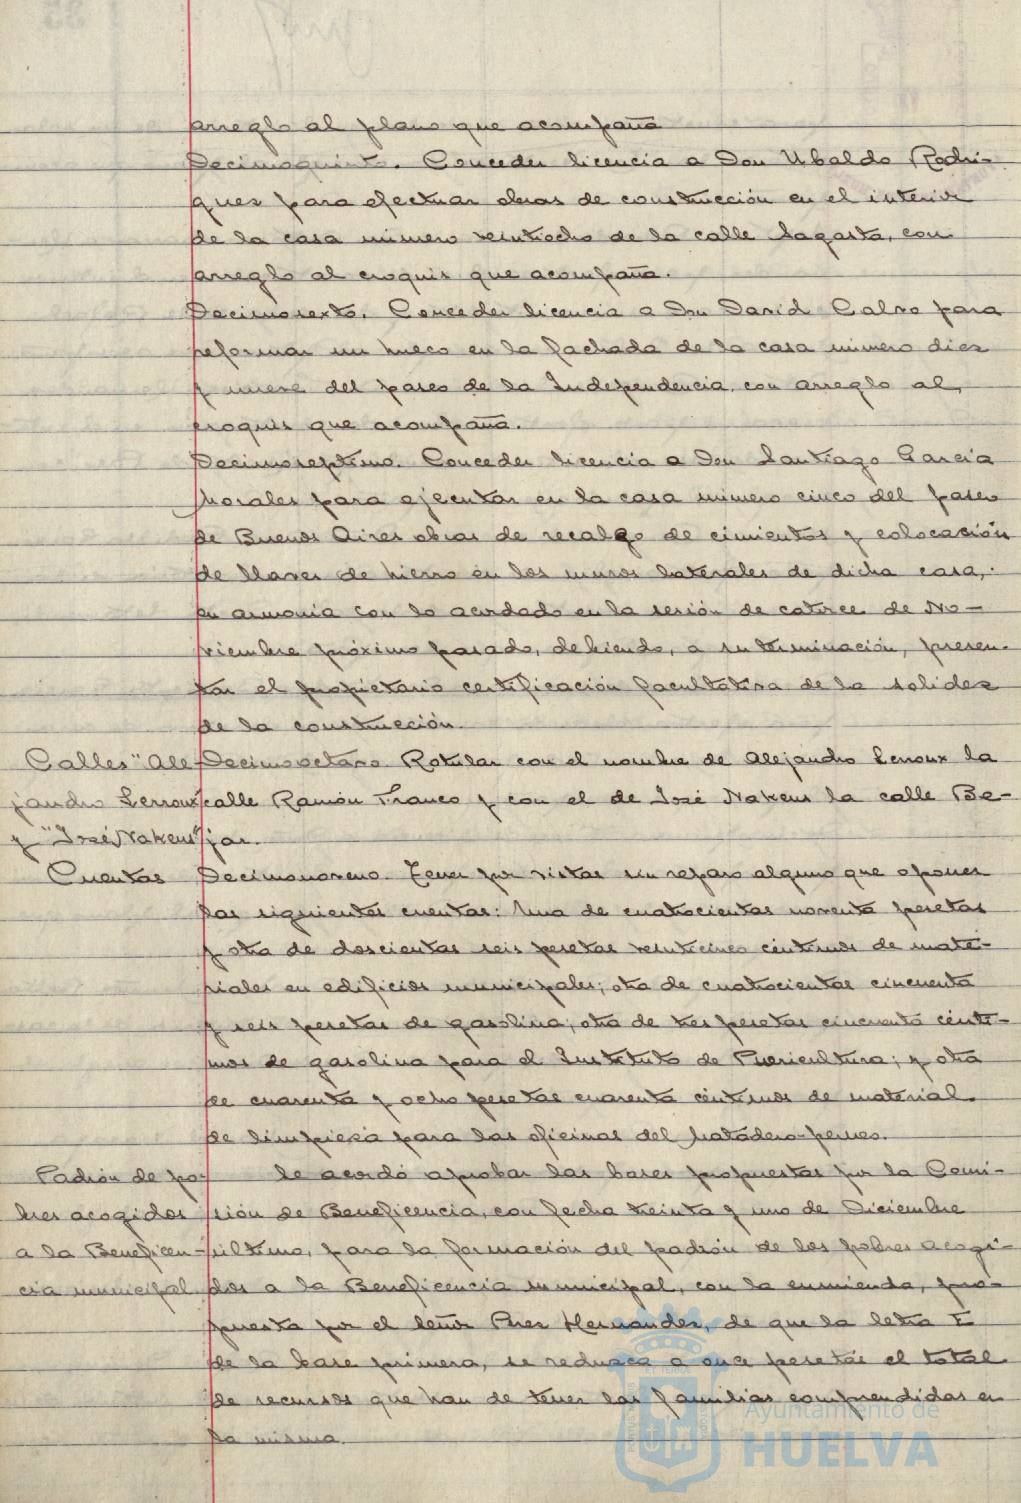 arreglo al plano que acompaña
Decimoquinto. Conceder licencia a Don Ubaldo Rodri-
guez para efectuar obras de construcción en el interior
de la casa número veintiocho de la calle Sagasta, con
arreglo al croquis que acompaña.
Decimosexto. Conceder licencia a Don David Calvo para
reformar un hueco en la fachada de la casa número diez
y nueve del paseo de la Independencia, con arreglo al
croquis que acompaña.
Decimoseptimo. Conceder licencia a Don Santiago García
Morales para ejecutar en la casa número cinco del paseo
de Buenos Aires obras de recalzo de cimientos y colocación
de llaves de hierro en los muros laterales de dicha casa,
en armonía con lo acordado en la sesión de catorce de No-
viembre próximo pasado, debiendo, a su terminación, presen-
tar el propietario certificación facultativa de la solidez
de la construcción.
Calles "Ale-
jandro Lerroux"
y "José Nakens"
Decimoctavo Rotular con el nombre de Alejandro Lerroux la
calle Ramón Franco y con el de José Nakens la calle Be-
jar.
Cuentas
Decimonoveno. Tener por vistas sin reparo alguno que oponer
las siguientes cuentas: Una de cuatrocientas noventa pesetas
y otra de doscientas seis pesetas veinticinco céntimos de mate-
riales en edificios municipales; otra de cuatrocientas cincuenta
y seis pesetas de gasolina; otra de tres pesetas cincuenta cénti-
mos de gasolina para el Instituto de Puericultura; y otra
de cuarenta y ocho pesetas cuarenta céntimos de material
de limpieza para las oficinas del Matadero-perros.
Padrón de po-
bres acogidos
a la Beneficen-
cia municipal
Se acordó aprobar las bases propuestas por la Comi-
sión de Beneficencia, con fecha treinta y uno de Diciembre
último, para la formación del padrón de los pobres acogi-
dos a la Beneficencia municipal, con la enmienda, pro-
puesta por el Señor Pires Hernández, de que la letra E
de la base primera, se reduzca a once pesetas el total
de recursos que han de tener las familias comprendidas en
la misma.
Ayuntamiento de
HUELVA